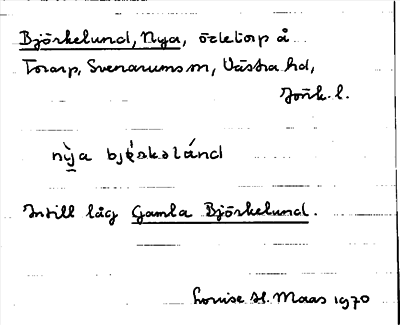 Björkelund, Nya, ödetorp å
Torarp, Svenarums sn, Västra hd,
Jönk. l.
nỳa bjɛ́skəlánd
Intill låg Gamla Björkelund.
Louise H. Maas 1970